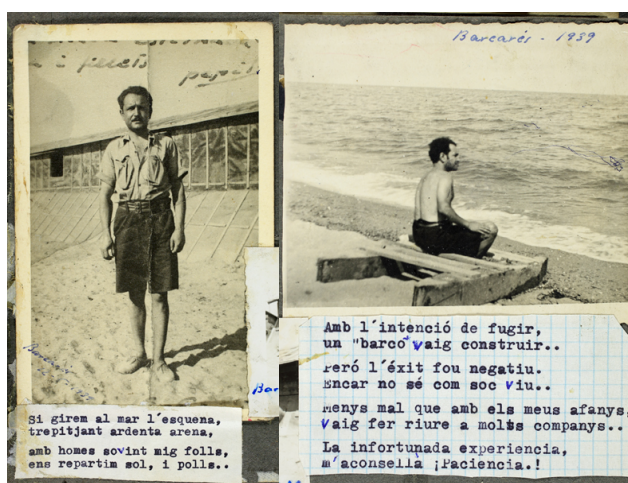 i filets
Barcarés - 1939
Si girem al mar l'esquena,
trepitjant ardenta arena,
amb homes sovint mig folls,
ens repartim sol, i polls..
Amb l'intenció de fugir,
un "barco" vaig construir..
Peró l'éxit fou negatiu.
Encar no sé com soc viu..
Menys mal que amb els meus afanys,
vaig fer riure a molts companys..
La infortunada experiencia,
m'aconsellà ¡Paciencia.!